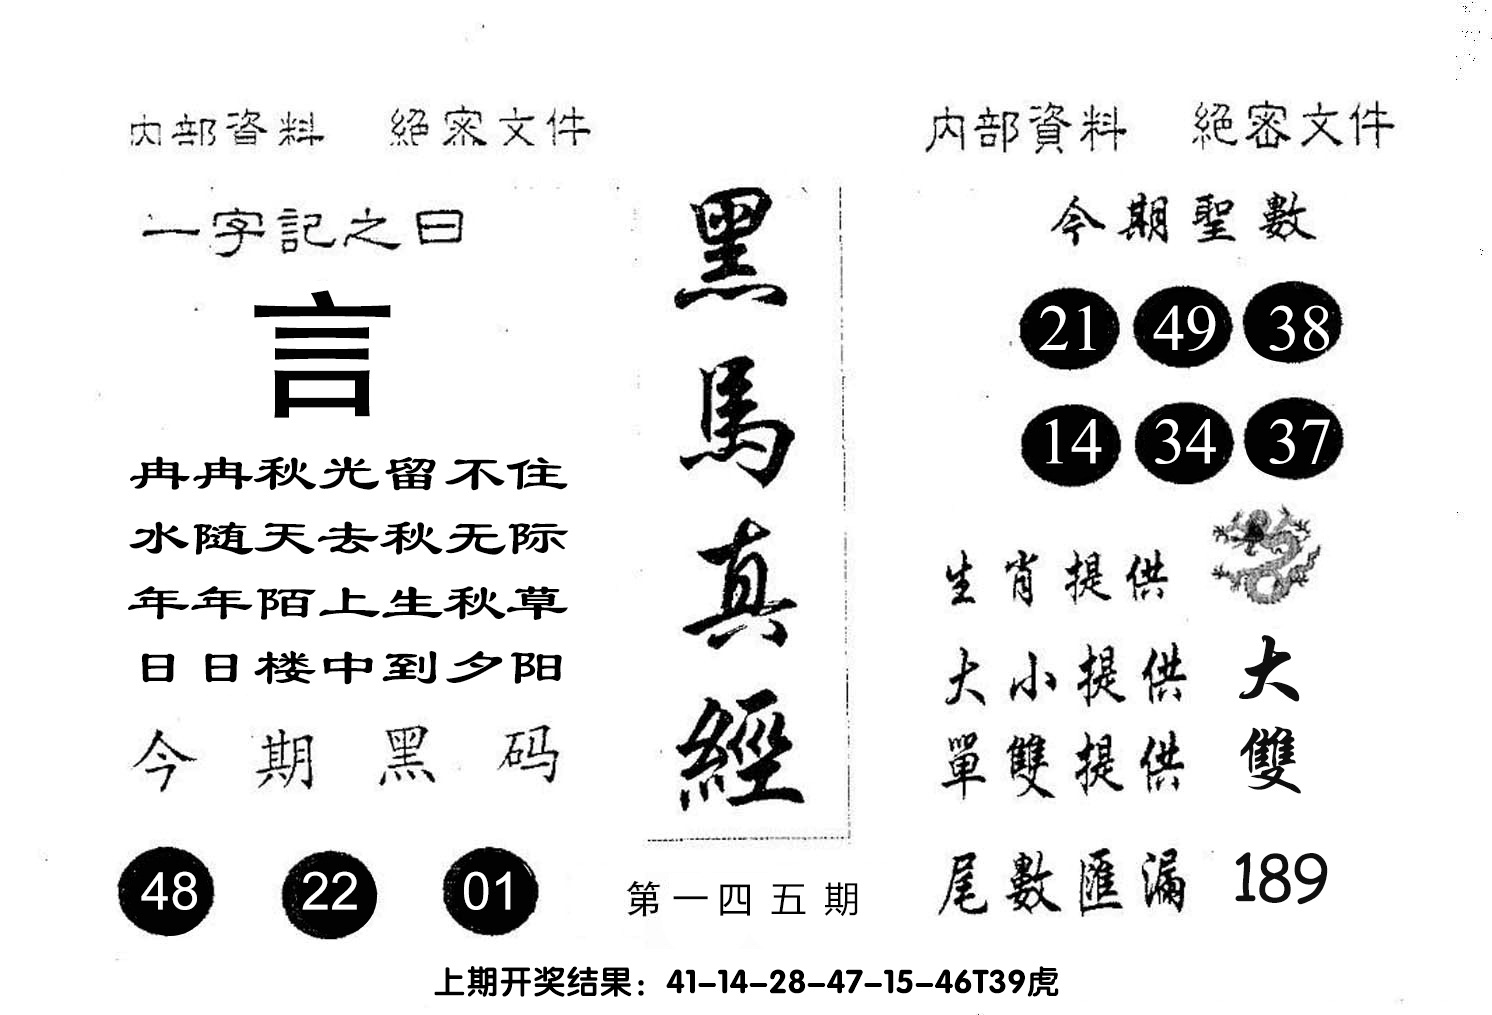 内部資料 絕密文件
一字記之曰
言
冉冉秋光留不住
水随天去秋无际
年年陌上生秋草
日日楼中到夕阳
今期黑码
48 22 01
黑馬真經
第一四五期
内部資料 絕密文件
今期聖數
21 49 38
14 34 37
生肖提供
大小提供 大
單雙提供 雙
尾數匯漏 189
上期开奖结果：41-14-28-47-15-46T39虎